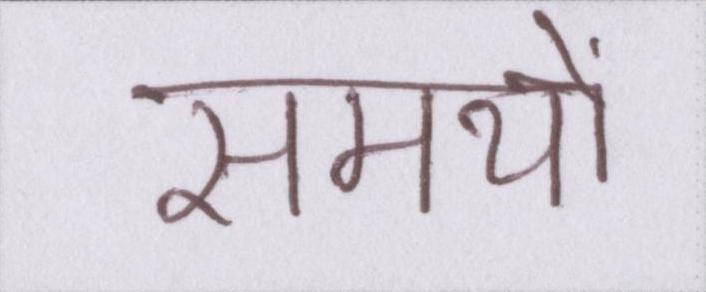 समयों